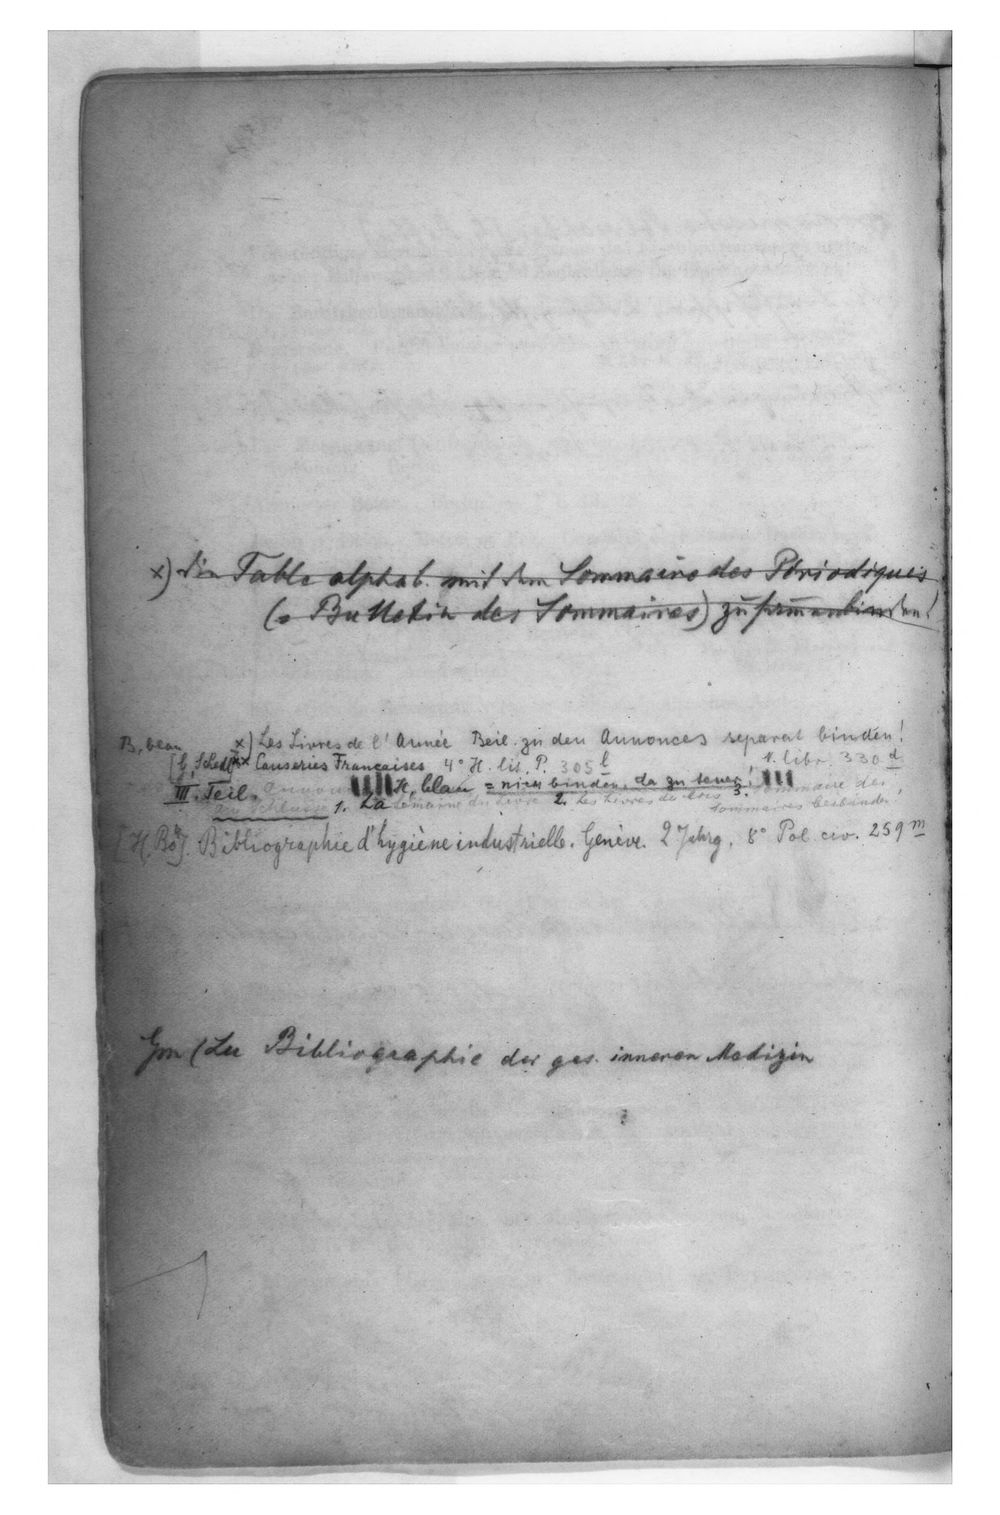 x) Die Table alphab. mit dem Sommaire des Périodiques
(= Bulletin des Sommaires) zusammenbinden!
B, blau x) Les Livres de l'Année Beil. zu den Annonces separat binden!
xx Causeries Françaises 4° H. lit. P. 305 l N. libr. 330 d
III. Teil. H, blau = nicht binden, da zu teuer!
am Schlusse 1. La Semaine du Livre 2. Les Livres du Mois 3. Sommaire des
Sommaires beibinden
[H, Bö]. Bibliographie d'hygiène industrielle. Genève. 2 Jahrg. 8° Pol. civ. 259 m
(Zu Bibliographie der ges. inneren Medizin